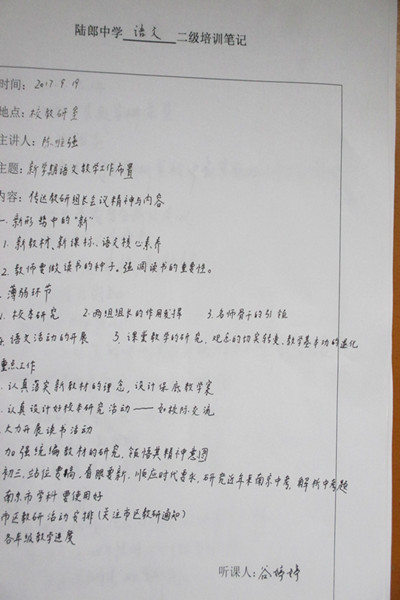 陆郎中学 语文 二级培训笔记
时间：2017.9.19
地点：校教研室
主讲人：陈
主题：新学期语文教学工作布置
内容：传达教研组长会议精神与内容
一.新形势中的“新”
1.新教材、新课标、语文核心素养
2.教师要做读书的种子,强调读书的重要性。
.薄弱环节
1.校本研究 2.两组组长的作用发挥 3.名师骨干的引领
.语文活动的开展 5.课堂教学的研究、观念的切实转变、教学基本功的退化
重点工作
.认真落实新教材的理念，设计
.认真设计好校本研究活动——如校际交流
.大力开展读书活动
加强统编教材的研究、领悟其精神意图
初三、站位要高,着眼要新、顺应时代要求,研究近年来南京中考,解析中考题
南京市学科 要使用好
市区教研活动安排(关注市区教研通知)
各年级教学进度
听课人：谷婷婷